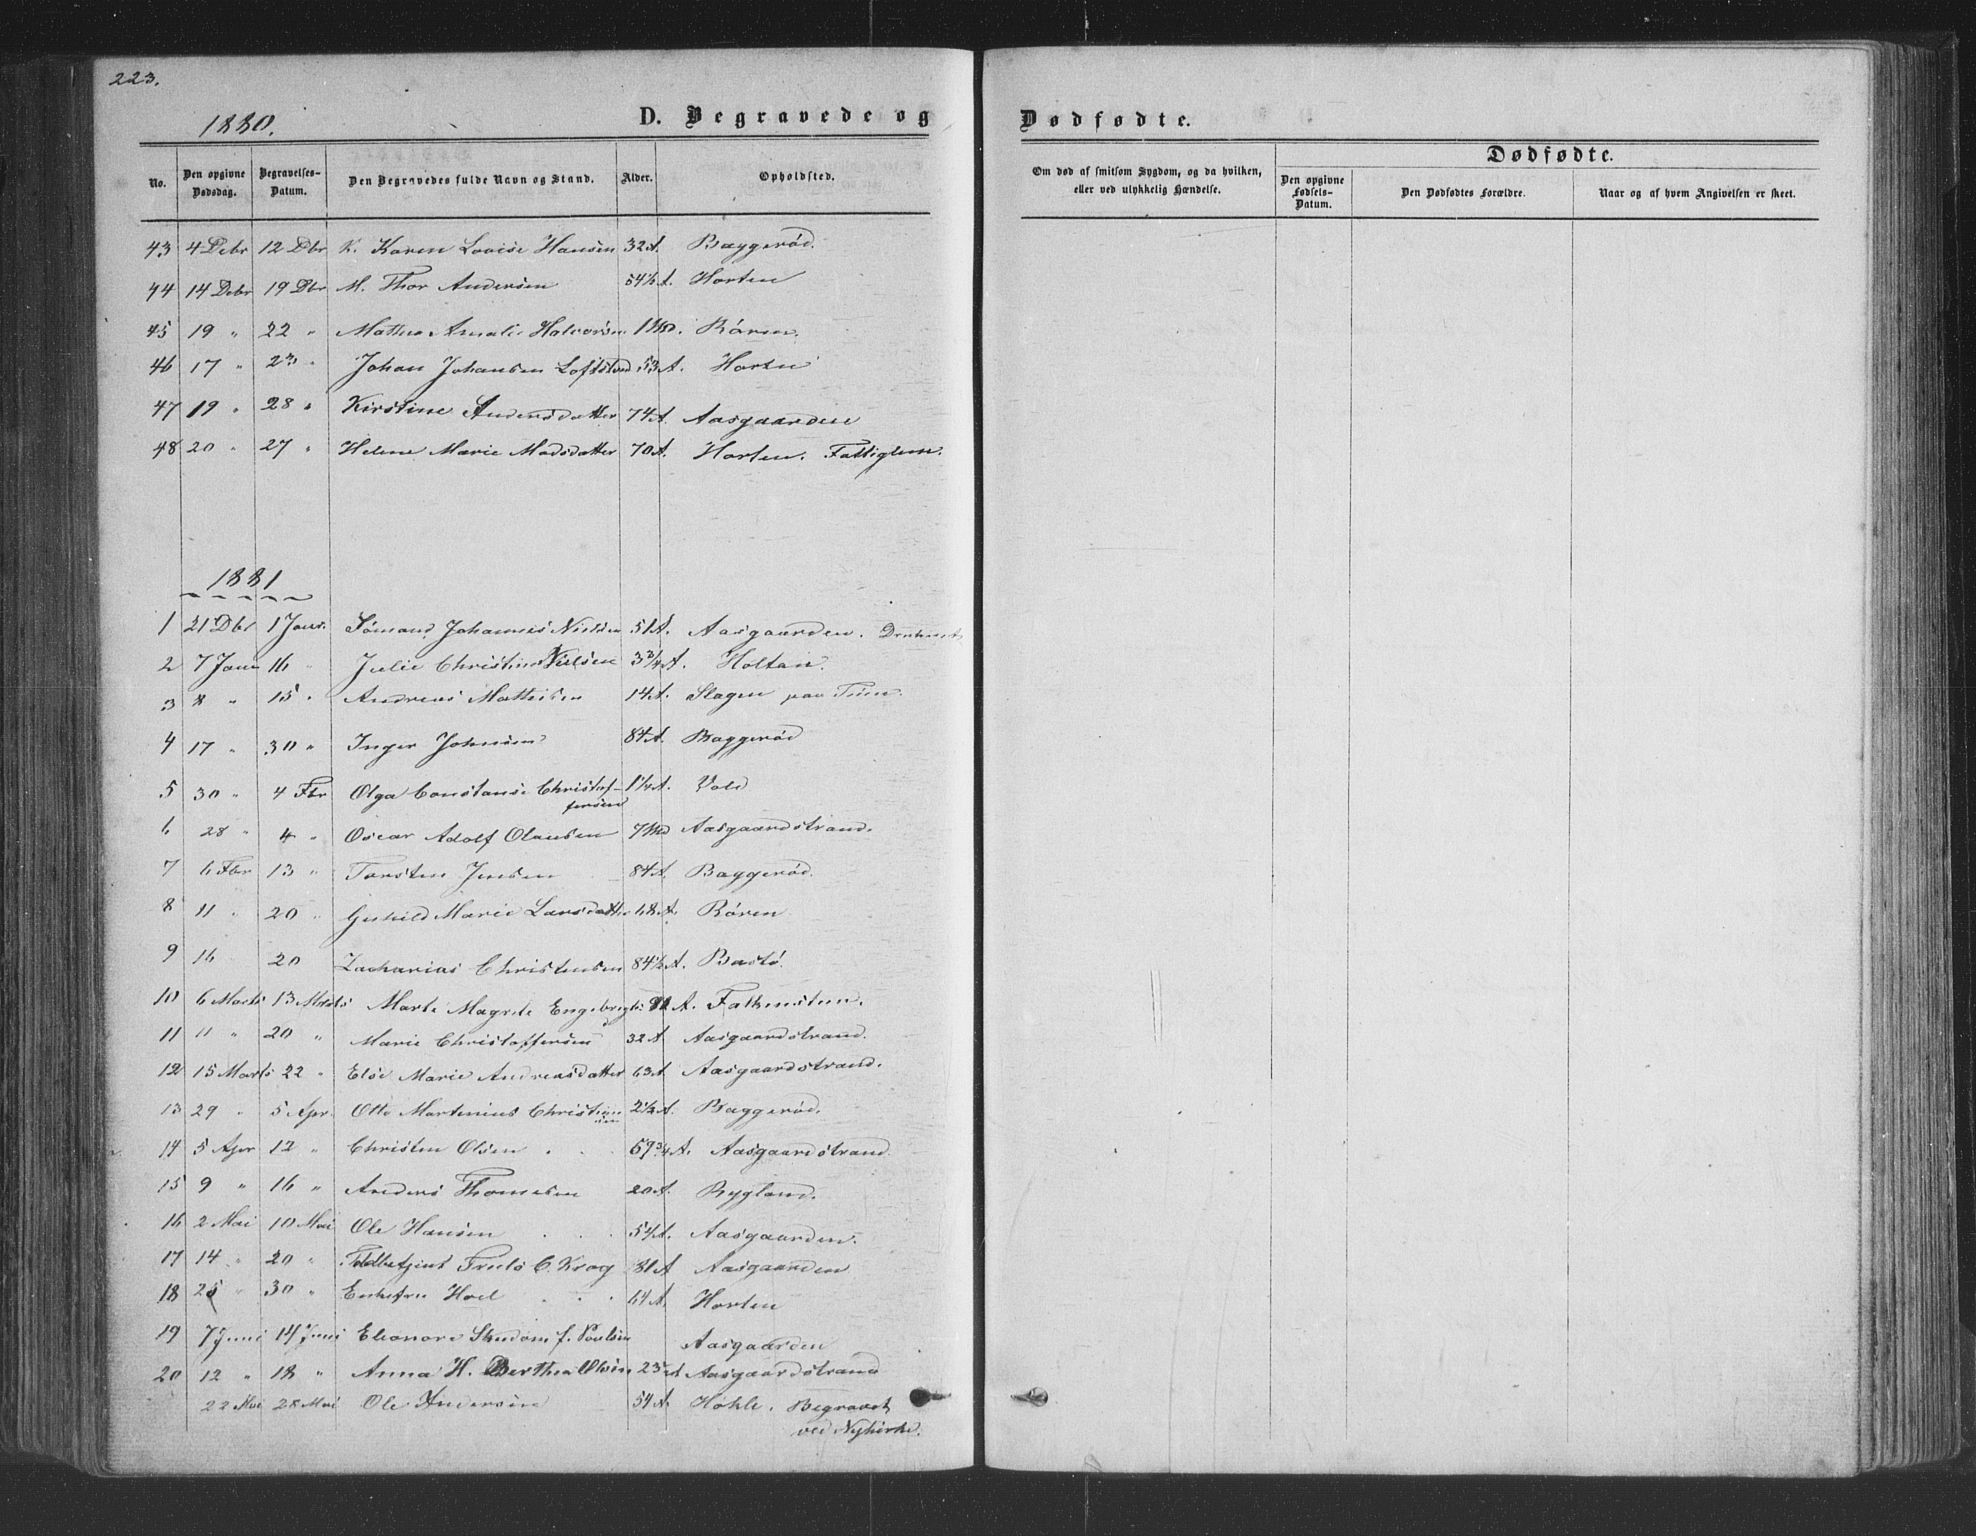 223.
1880.
D. Begravede og
Dødfødte.
No. Den opgivne Dødsdag. Begravelses-Datum. Den Begravedes fulde Navn og Stand. Alder. Opholdsted.
Om død af smitsom Sygdom, og da hvilken, eller ved ulykkelig Hændelse.
Dødfødte.
Den opgivne Fødsels-Datum. Den Dødfødtes Forældre. Naar og af hvem Angivelsen er skeet.
43 4 Debr 12 Dbr K. Karen Lovise Hansen 32 A. Baggerød.
44 14 Debr 19 Dbr M. Thor Andersen 54½ A. Horten
45 19 " 22 " Mathea Amalie Halvorsen 1 Md. Rören.
46 17 " 23 " Johan Johansen Loftstad 53 A. Horten
47 19 " 28 " Kirstine Andersdatter 74 A. Aasgaarden
48 20 " 27 " Helene Marie Madsdatter 70 A. Horten. Fattiglem.
1881
1 21 Dbr 1 Janr. Sømand Johannes Nielsen 51 A. Aasgaarden.
2 7 Janr 16 " Julie Christine Nielsen 3¾ A. Holtan.
3 8 " 15 " Andreas Mathisen 14 A. Slagen paa
4 17 " 30 " Inger Johnsen 84 A. Baggerød
5 30 " 4 Fbr Olga Constanse Christof-
fersen 1¼ A. Vold
6 28 " 4 " Oscar Adolf Olausen 7 Md Aasgaardstrand.
7 6 Fbr 13 " Torsten Jensen 84 A. Baggerød.
8 11 " 20 " Gunild Marie Larsdatter 68 A. Rören
9 16 20 Zacharias Christensen 84½ A. Bastö.
10 6 Marts 13 Marts Marte Magrete Engebregts. A. Falkensten.
11 11 " 20 " Marie Christoffersen 32 A Aasgaardstrand.
12 15 Marts 22 " Else Marie Andreasdatter 63 A Aasgaardstrand.
13 29 " 5 Apr. Otto Martinius Christian
sen 2½ A. Baggerød.
14 5 Apr 12 " Christen Olsen 69¾ A. Aasgaardstrand
15 9 " 16 " Anders Thomesen 20 A. Rygland.
16 2 Mai 10 Mai Ole Hansen 54 A. Aasgaarden.
17 14 " 20 " Truls C. Krog 81 A Aasgaarden
18 25 " 30 " Enkefru Hoel 64 A. Horten
19 7 Juni 14 Juni Eleonore f. Poulsen Aasgaarden
20 12 " 18 " Anna H. Berthea Olsen 23 A Aasgaardstrand
22 Mai 28 Mai Ole Andersen 54 A. Høkle. Begravet
ved Nykirke.